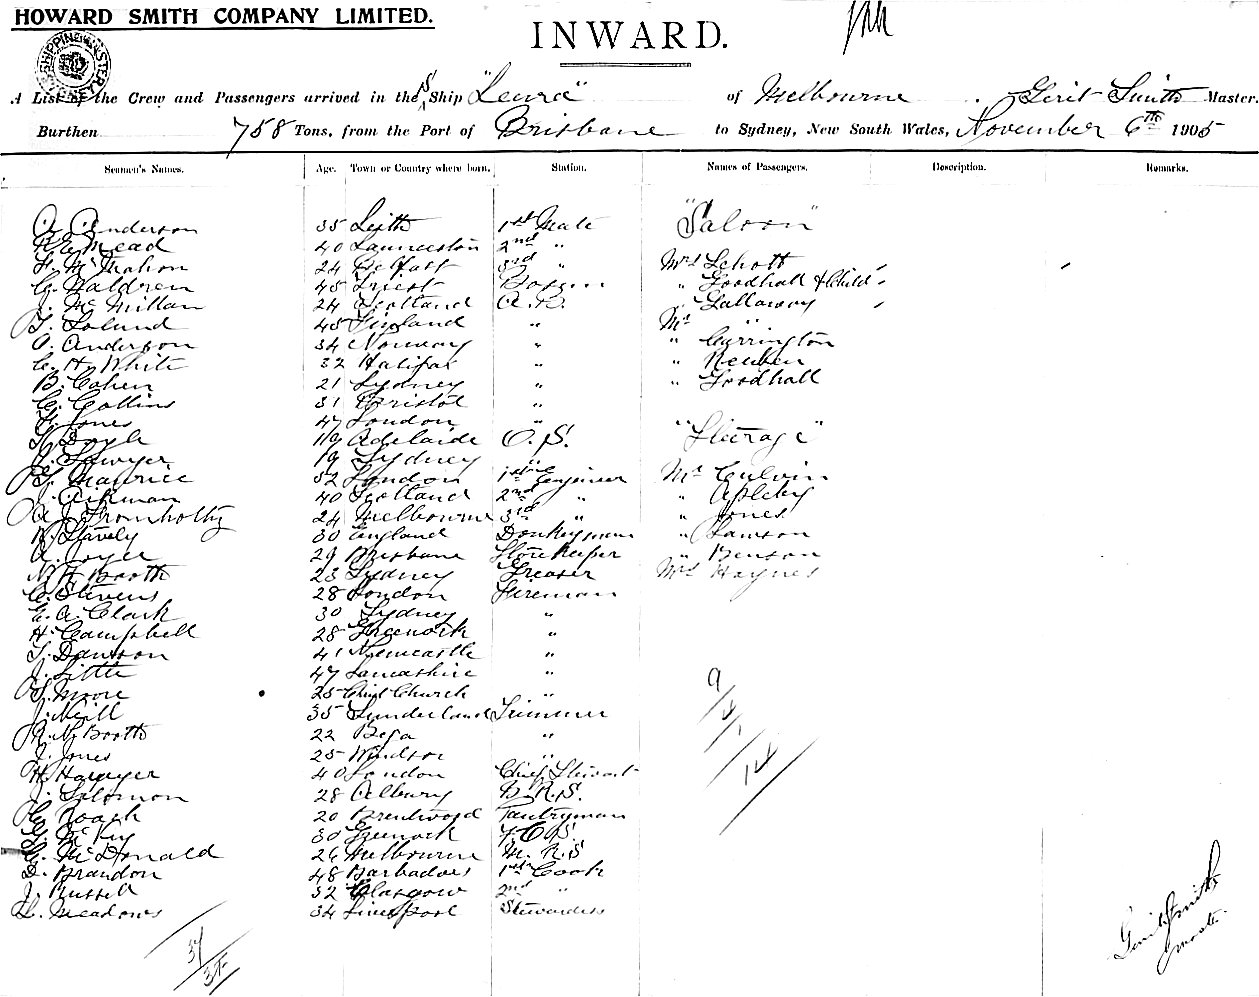 HOWARD SMITH COMPANY LIMITED.
INWARD.
A List of the Crew and Passengers arrived in the S Ship "Leura" of Melbourne. Gerit Smith Master.
Burthen 758 Tons, from the Port of Brisbane to Sydney, New South Wales, November 6th 1905
Seamen's Names. Age. Town or Country where born. Station. Names of Passengers. Description. Remarks.
A Anderson 35 Leith 1st Mate "Saloon"
Mead 40 Launceston 2nd "
F. McMahon 24 Belfast 3rd " Mrs Schott
C. Waldren 45 Triest Bosun " Goodhall & Child
J. McMillan 24 Scotland A.B. " Gallaway
45 Finland " Mr "
A. Anderson 34 Norway " " Carrington
C. H. White 32 Halifax " " Reuben
B. Cohen 21 Sydney " " Goodhall
C. Collins 31 Bristol "
Jones 47 London "
Doyle 19 Adelaide O.S. "Steerage"
J. Sawyer 19 Sydney "
Maurice 52 London 1st Engineer Mr Culvin
J. Aikman 40 Scotland 2nd " " Apleby
24 Melbourne 3rd " " Jones
30 England Donkeyman " Lawson
A. Joyce 29 Brisbane Storekeeper " Benson
Booth 23 Sydney Greaser Mrs Haynes
C. Stevens 28 London Fireman
E. A. Clark 30 Sydney "
H. Campbell 28 Greenock "
T. Dawson 41 Newcastle "
J. Little 47 Lancashire "
Moore 25 Christ Church "
J. Neill 35 Sunderland Trimmer
Booth 22 Bega "
J. Jones 25 Windsor "
H. 40 London Chief Steward
J. Solomon 28 Albury B.R.S.
Roach 20 Brentwood Pantryman
30 Greenock F.C.S.
McDonald 26 Melbourne M.R.S
D. Brandon 48 Barbadoes 1st Cook
J. Russell 32 Glasgow 2nd "
Meadows 34 Liverpool Stewardess
9
14
37
Gerit Smith
Master